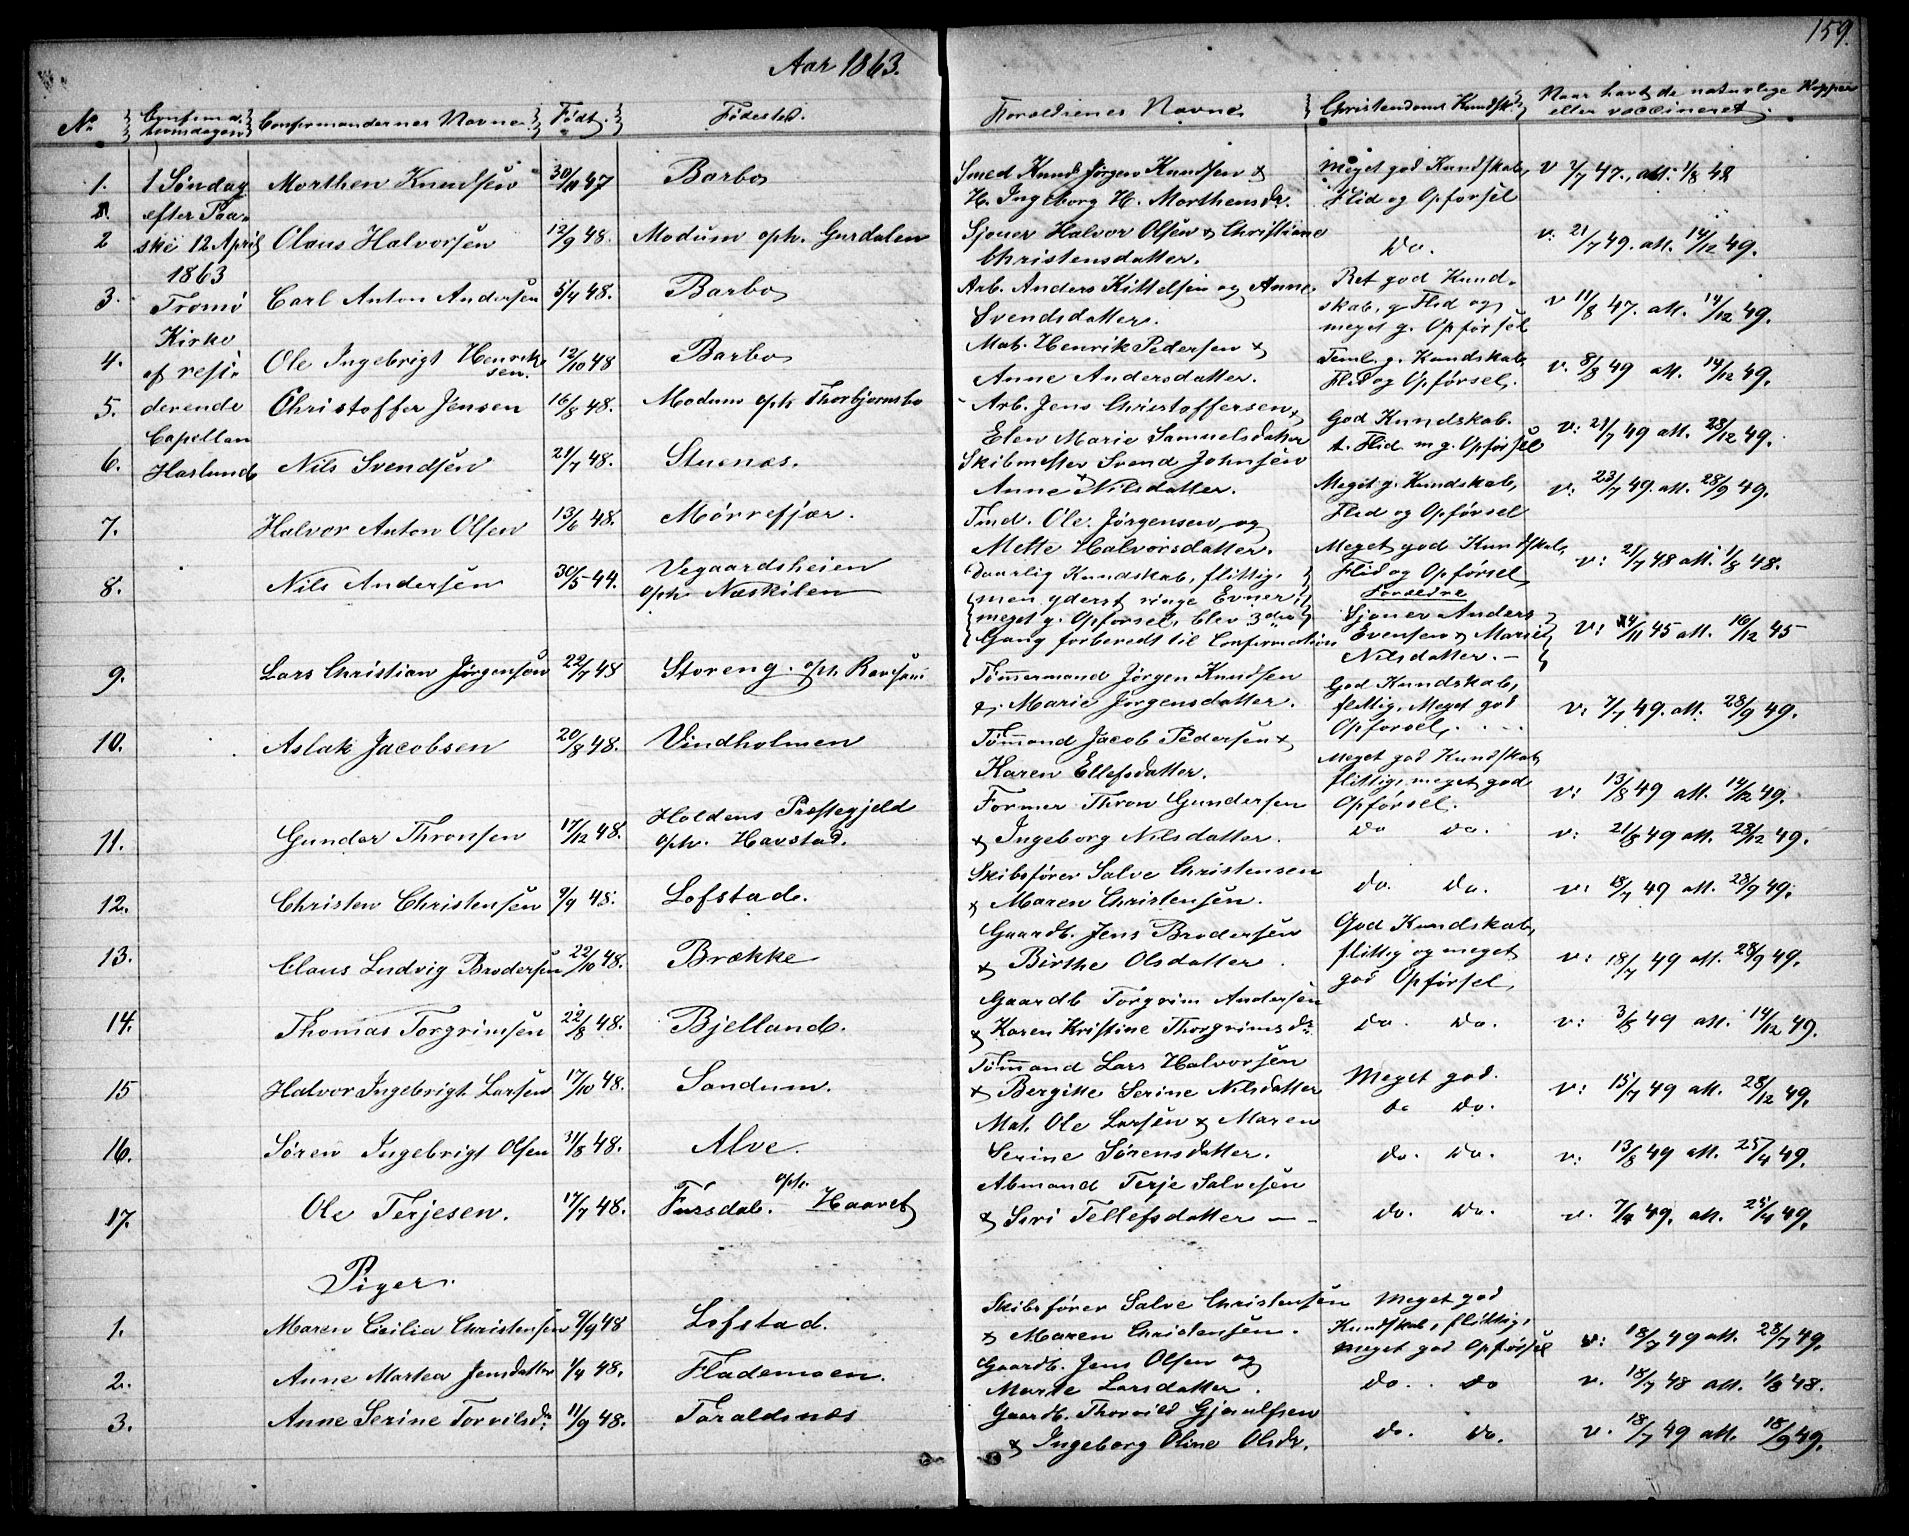 159.
Aar 1863.
No Confirmationsdagen Confirmandernes Navne Født. Fødested. Forældrenes Navne Christendoms Kundsk. Naar havt de naturlige Kopper eller vaccineret.
1 Søndag
efter Paa-
ske 12 April
1863
Tromø
Kirke
af resi-
derende
Capellan
Haslund
1. Morthen Knudsen 30/10 47 Barbo Smed Knud Jørgen Knudsen & Meget god Kundskab, v 7/7 47. att. 1/8 48
H. Ingeborg H. Morthensdr. Flid og Opførsel
2 Claus Halvorsen 12/9 48. Modum oph. Gurdalen Sjouer Halvor Olsen & Christiane Do. v: 21/7 49. att. 14/12 49.
Christensdatter.
3. Carl Anton Andersen 5/4 48. Barbo Arb. Anders Kittelsen og Anne Ret god Kund- v 11/8 47. att. 14/12 49.
Svendsdatter. skab, g Flid og
meget g. Opførsel
4. Ole Ingebrigt Henriksen. 12/10 48 Barbo Mat. Henrik Pedersen & Teml. g. Kundskab, v. 8/8 49 att. 14/12 49.
Anne Andersdatter. Flid og Opførsel.
5. Christoffer Jensen 16/8 48. Modum oph Thorbjørnsbo Arb. Jens Christoffersen & God Kundskab. v: 21/7 49 att. 28/12 49.
Elen Marie Samuelsdatter t. Flid m g. Opførsel
6. Nils Svendsen 21/7 48. Stuenæs. Skibmester Svend Johnsen Meget g. Kundskab, v: 23/7 49. att. 28/9 49.
& Anne Nilsdatter. Flid og Opførsel
7. Halvor Anton Olsen 13/6 48. Mørrefjær. Tmd. Ole Jørgensen og Meget god Kundskab, v: 21/7 48 att. 1/8 48.
Mette Halvorsdatter. Flid og Opførsel
8. Nils Andersen 30/5 44. Vegaardsheien daarlig Kundskab, flittig, Forældre
oph. Næskilen men yderst ringe Evner, Sjouer Anders v: 14/11 45 att. 16/12 45
meget g. Opførsel, blev 3die Evensen & Marie
Gang forberedt til Confirmation Nilsdatter.
9. Lars Christian Jørgensen 22/7 48 Storeng. oph. Tømmermand Jørgen Knudsen God Kundskab, v: 7/7 49. att. 28/9 49.
&. Marie Jørgensdatter. flittig, Meget god
Opførsel.
10. Aslak Jacobsen 20/8 48. Vindholmen Tømmand Jacob Pedersen & Meget god Kundskab, v: 13/8 49 att. 14/12 49.
Karen Ellefsdatter. flittig, meget god
Opførsel.
11. Gunder Thronsen 17/12 48. Holdens Præstegjeld Former Thron Gundersen do do. v: 21/8 49 att. 28/12 49.
oph. Havstad. & Ingeborg Nilsdatter.
12. Christen Christensen 9/9 48. Lofstad. Skibsfører Salve Christensen do. do. v: 18/7 49 att. 28/9 49.
& Maren Christensen.
13. Claus Ludvig Brodersen 22/10 48. Brække Gaardb. Jens Brodersen God Kundskab, v: 18/7 49 att. 28/9 49.
& Birthe Olsdatter. flittig og meget
god Opførsel,
14. Thomas Torgrimsen 22/8 48. Bjelland. Gaardb Torgrim Andersen do. do. v: 3/8 49 att. 14/12 49.
& Karen Kristine Thorgrimsdr.
15 Halvor Ingebrigt Larsen 17/10 48. Sandum. Tømmand Lars Halvorsen Meget god. v: 15/7 49 att. 28/12 49.
& Bergitte Serine Nilsdatter do Do.
16. Søren Ingebrigt Olsen 31/8 48. Alve. Mat. Ole Larsen & Maren do. Do. v: 13/8 49 att. 25/4 49.
Serine Sørensdatter.
17. Ole Terjesen. 17/7 48. oph. Haavet Abmand Terje Salvesen do. Do. v. 7/4 49. att. 25/4 49.
& Siri Tellefsdatter
Piger.
1. Maren Cicilia Christensen 9/9 48 Lofstad. Skibsfører Salve Christensen Meget god v: 18/7 49 att. 28/7 49.
& Maren Christensen. Kundskab, flittig,
meget god Opførsel
2. Anne Martea Jensdatter 1/4 48. Flademoen. Gaardb. Jens Olsen og do. do v. 18/7 48 att. 1/8 48.
Marte Larsdatter.
3. Anne Serine Torvilsdr. 11/9 48. Taraldsnæs Gaardb. Thorvild Gjeruldsen do. do. v. 18/7 49 att. 18/9 49.
& Ingeborg Oline Olsdr.